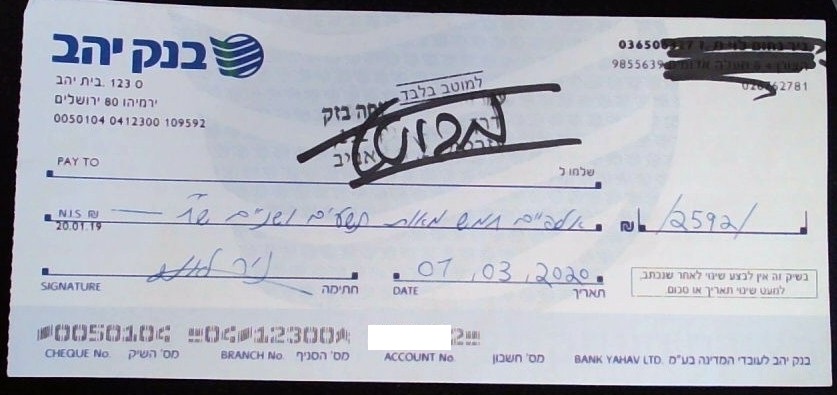 בנק יהב
סנ. 123 בית יהב
ירמיהו 80 ירושלים
0050104 0412300 109592
9855639
למוטב בלבד
מבוטל
PAY TO
שלמו ל
N.I.S ₪
20.01.19
אלפיים חמש מאות תשעים ושניים ש"ח
₪ /2592/
SIGNATURE
חתימה
07.03.2020
DATE
תאריך
בשיק זה אין לבצע שינוי לאחר שנכתב,
למעט שינוי תאריך או סכום
CHEQUE No. מס' השיק BRANCH No. מס' הסניף ACCOUNT No. מס' חשבון BANK YAHAV LTD. בנק יהב לעובדי המדינה בע"מ